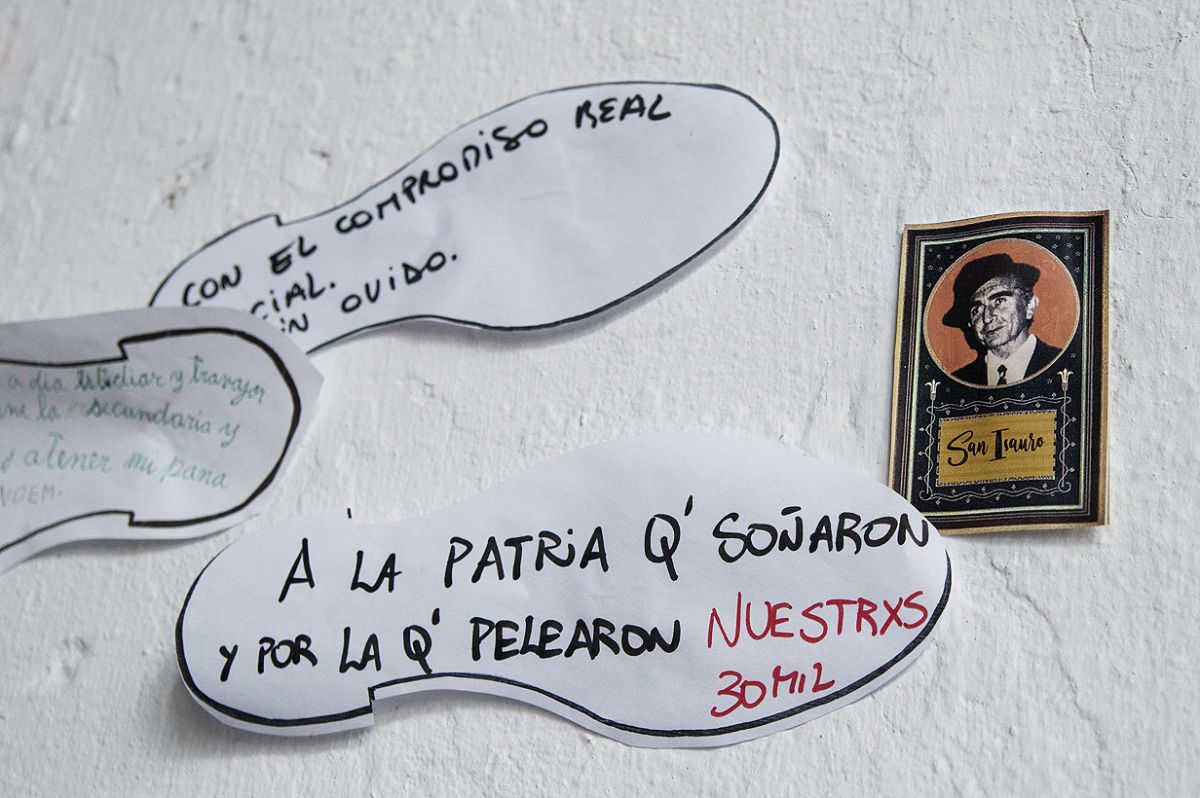 CON EL COMPRODISO REAL
CIAL.
IN OVIDO.
a dia estudiar y travajar
ne la secundaria y
s a tener mi pana
San Isauro
A LA PATRIA Q' SOÑARON
Y POR LA Q' PELEARON NUESTRXS
30MIL